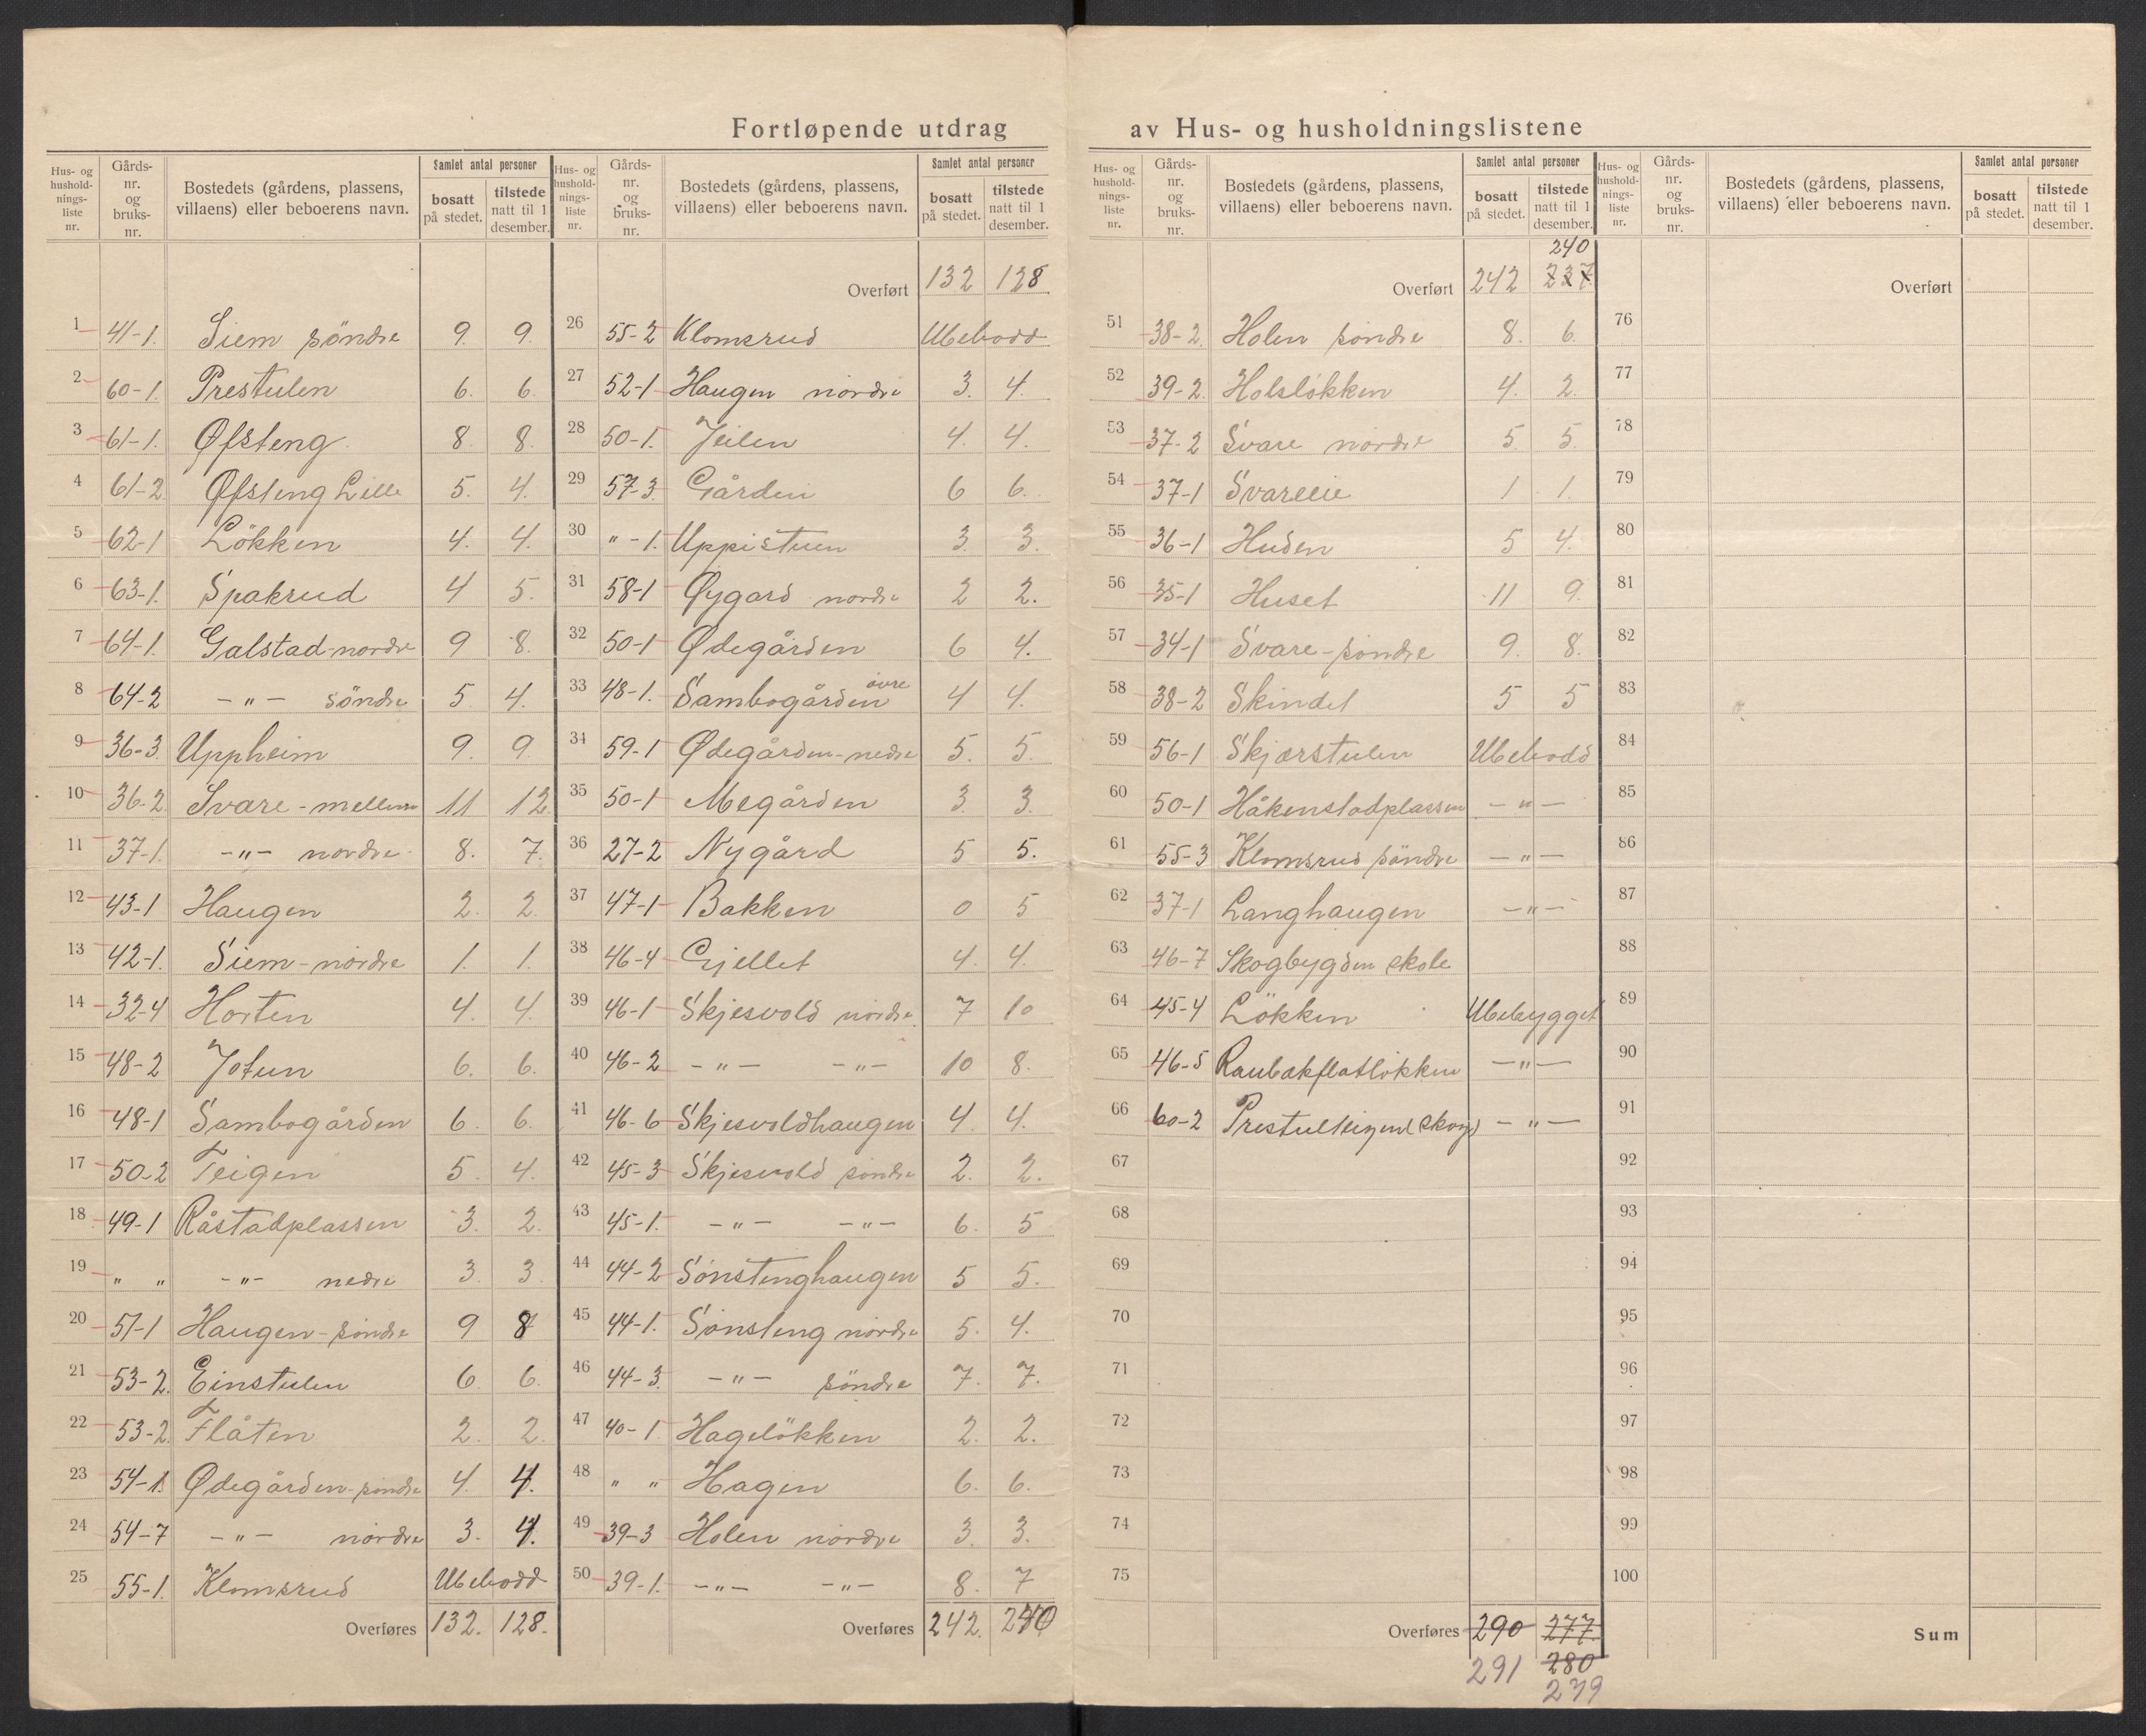 Fortløpende utdrag av Hus- og husholdningslistene
Hus- og hushold-nings-liste nr. | Gårds-nr. og bruks-nr. | Bostedets (gårdens, plassens, villaens) eller beboerens navn. | Samlet antal personer | bosatt på stedet. | tilstede natt til 1 desember.
1 41-1. Siem söndre 9. 9.
2 60-1. Prestulen 6. 6.
3 61-1. Øfsteng 8. 8.
4 61-2 Øfsteng Lille 5. 4.
5 62-1 Lökken 4. 4.
6 63-1. Spakrud 4 5.
7 64-1. Galstad-nordre 9 8.
8 64-2 -"- söndre 5 4.
9 36-3. Uppheim 9. 9.
10 36-2. Svare-mellem 11 12.
11 37-1. -"- nordre 8. 7.
12 43-1 Haugen 2. 2.
13 42-1. Siem-nordre 1. 1.
14 32-4 Horten 4. 4.
15 48-2 Jotun 6. 6.
16 48-1 Sambogården 6. 6.
17 50-2 Teigen 5. 4.
18 49-1 Råstadplassen 3. 2.
19 " " -"- nedre 3. 3
20 51-1 Haugen-söndre 9 8
21 53-2. Einstulen 6. 6.
22 53-2. Flåten 2. 2.
23 54-1. Ødegården-söndre 4. 4.
24 54-7 -"- nordre 3. 4.
25 55-1. Klomsrud Ubebodd
Overføres 132. 128.
Hus- og hushold-nings-liste nr. | Gårds-nr. og bruks-nr. | Bostedets (gårdens, plassens, villaens) eller beboerens navn. | Samlet antal personer | bosatt på stedet. | tilstede natt til 1 desember.
Overført 132 128
26 55-2 Klomsrud Ubebodd
27 52-1 Haugen nordre 3. 4.
28 50-1. Jeilen 4. 4.
29 57-3. Gården 6 6.
30 " -1. Uppistuen 3. 3.
31 58-1 Øygard nordre 2 2.
32 50-1 Ødegården 6 4.
33 48-1. Sambogården övre 4 4.
34 59-1 Ødegården-nedre 5. 5.
35 50-1 Megården 3. 3.
36 27-2 Nygård 5 5.
37 47-1 Bakken 0 5
38 46-4 Gjellet 4. 4.
39 46-1 Skjesvold nordre 7 10
40 46-2 -"- -"- 10 8.
41 46-6 Skjesvoldhaugen 4. 4.
42 45-3 Skjesvold söndre 2. 2.
43 45-1. -"- -"- 6. 5
44 44-2 Sönstenghaugen 5 5.
45 44-1. Sönsteng nordre 5. 4.
46 44-3. -"- söndre 7. 7.
47 40-1 Hagelökken 2. 2.
48 " " Hagen 6. 6.
49 39-3 Holen nordre 3. 3.
50 39-1. -"- -"- 8. 7
Overføres 242. 240
Hus- og hushold-nings-liste nr. | Gårds-nr. og bruks-nr. | Bostedets (gårdens, plassens, villaens) eller beboerens navn. | Samlet antal personer | bosatt på stedet. | tilstede natt til 1 desember.
240
Overført 242 237
51 38-2. Holen söndre 8. 6.
52 39-2. Holslökken 4. 2.
53 37-2 Svare nordre 5. 5.
54 37-1 Svareeie 1 1.
55 36-1 Huden 5 4.
56 35-1 Huset 11 9.
57 34-1 Svare-söndre 9. 8.
58 38-2 Skindel 5 5
59 56-1 Skjærstulen Ubebodd
60 50-1 Håkenstadplassen -"-
61 55-3 Klomsrud söndre -"-
62 37-1 Langhaugen -"-
63 46-7 Skogbygden skole
64 45-4 Lökken Ubebygget
65 46-5 Raubækflatlökken -"-
66 60-2 Prestulteigen (skog) -"-
67
68
69
70
71
72
73
74
75
Overføres 290 277.
291 280
279
Hus- og hushold-nings-liste nr. | Gårds-nr. og bruks-nr. | Bostedets (gårdens, plassens, villaens) eller beboerens navn. | Samlet antal personer | bosatt på stedet. | tilstede natt til 1 desember.
Overført
76
77
78
79
80
81
82
83
84
85
86
87
88
89
90
91
92
93
94
95
96
97
98
99
100
Sum